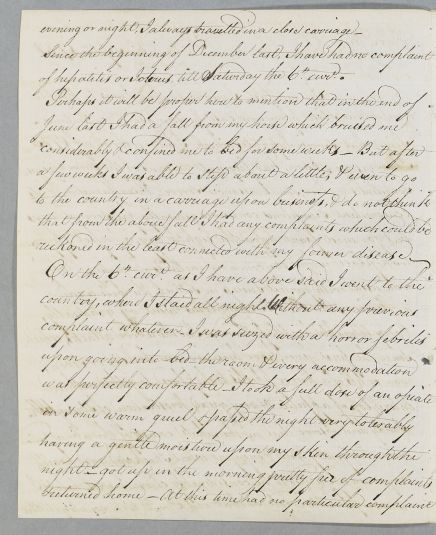 evening or night, I always travelled in a close carriage –
Since the beginning of December last, I have had no complaint
of hepatites or Icterus till Saturday the 6th curt.
Perhaps it will be proper here to mention that in the end of
June last I had a fall from my horse which bruised me
considerably & confined me to bed for some weeks – But after
a few weeks I was able to step about a little; & even to go
to the country in a carriage upon business, & do not think
that from the above fall I had any complaints which could be
reckoned in the least connected with my former disease –
On the 6th curt as I have above said I went to the
country, where I staid all night. Without any previous
complaint whatever – I was seized with a horror febrilis
upon going into bed – the room & every accommodation
was perfectly comfortable – I took a full dose of an opiate
in some warm gruel & passed the night very tolerably
having a gentle moisture upon my skin through the
night – got up in the morning pretty free of complaints
& returned home – At this time had no particular complaint